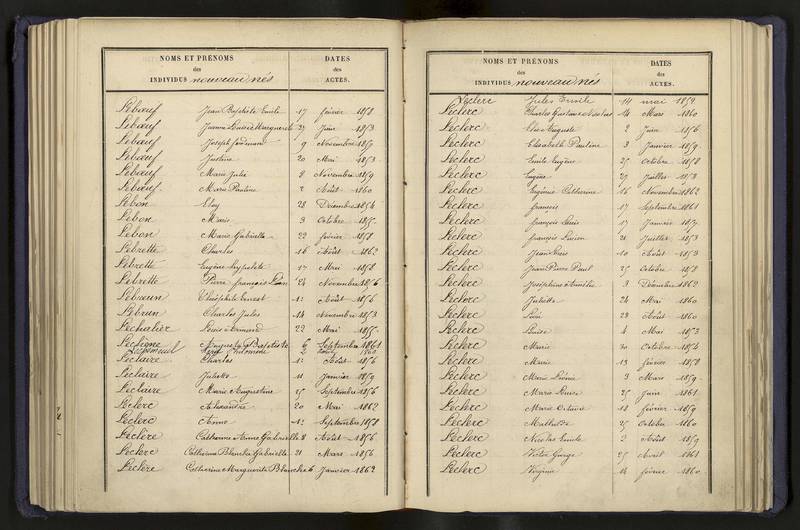 NOMS ET PRÉNOMS
des
INDIVIDUS nouveau nés
DATES
des
ACTES.
Lebœuf Jean Baptiste Emile 17 février 1858
Lebœuf Jeanne Louise Marguerite 27 Juin 1853
Lebœuf Joseph ferdinand 9 Novembre 1857
Lebœuf Justine 20 Mai 1853
Lebœuf Marie Julie 8 Novembre 1859
Lebœuf Marie Pauline 2 Août 1860
Lebon Eloy 28 Décembre 1854
Lebon Marie 3 Octobre
Lebon Marie Gabrielle 22 février 1858
Lebrette Charles 16 Août 1862
Lebrette Eugène hypolite 17 Mai 1858
Lebrette Pierre françois Léon 24 Novembre 1856
Théophile Ernest Août 1856
Lebrun Charles Jules 14 Novembre 1853
Lechalier Louis Armand 22 Mai
Auguste Baptiste 6 Septembre 1861
Philomène 2 1860
Leclaire Charles Août 1856
Leclaire Juliette 11 Janvier 1859
Leclaire Marie Augustine 25 Septembre 1856
Leclerc Alexandre 20 Mai 1862
Leclerc Anne Septembre 1858
Leclère Catherine Anne Gabrielle 8 Août 1856
Leclerc Catherine Blanche Gabrielle 21 Mars 1856
Leclère Catherine Marguerite Blanche 6 Janvier 1862
NOMS ET PRÉNOMS
des
INDIVIDUS nouveau nés
DATES
des
ACTES.
Leclerc Jules Emile 14 mai 1852
Leclerc Charles Gustave Nicolas 14 Mars 1860
Leclerc Auguste 2 Juin 1856
Leclerc Elisabeth Pauline 3 Janvier 1859
Leclerc Emile Eugène 25 Octobre 1858
Leclerc Eugène 27 Juillet 1853
Leclerc Eugénie Catherine 16 Novembre 1862
Leclerc françois 17 Septembre 1861
Leclerc françois Louis 17 Janvier
Leclerc françois Lucien 21 Juillet 1853
Leclerc Jean 10 Août 1853
Leclerc Jean Pierre Paul 25 Octobre 1858
Leclerc Joséphine 3 Décembre 1862
Leclerc Juliette 24 Mai 1860
Leclerc 28 Août 1860
Leclerc Louise 4 Mai 1853
Leclerc Marie 30 Octobre 1854
Leclerc Marie 13 février 1858
Leclerc Marie 9 Mars 1859
Leclerc Marie Louise 25 Juin 1861
Leclerc Marie Octavie 18 février 1859
Leclerc Mathilde 25 Octobre 1860
Leclerc Nicolas Emile 2 Août 1859
Leclerc Victor George 25 Avril 1861
Leclerc Virginie 14 février 1860